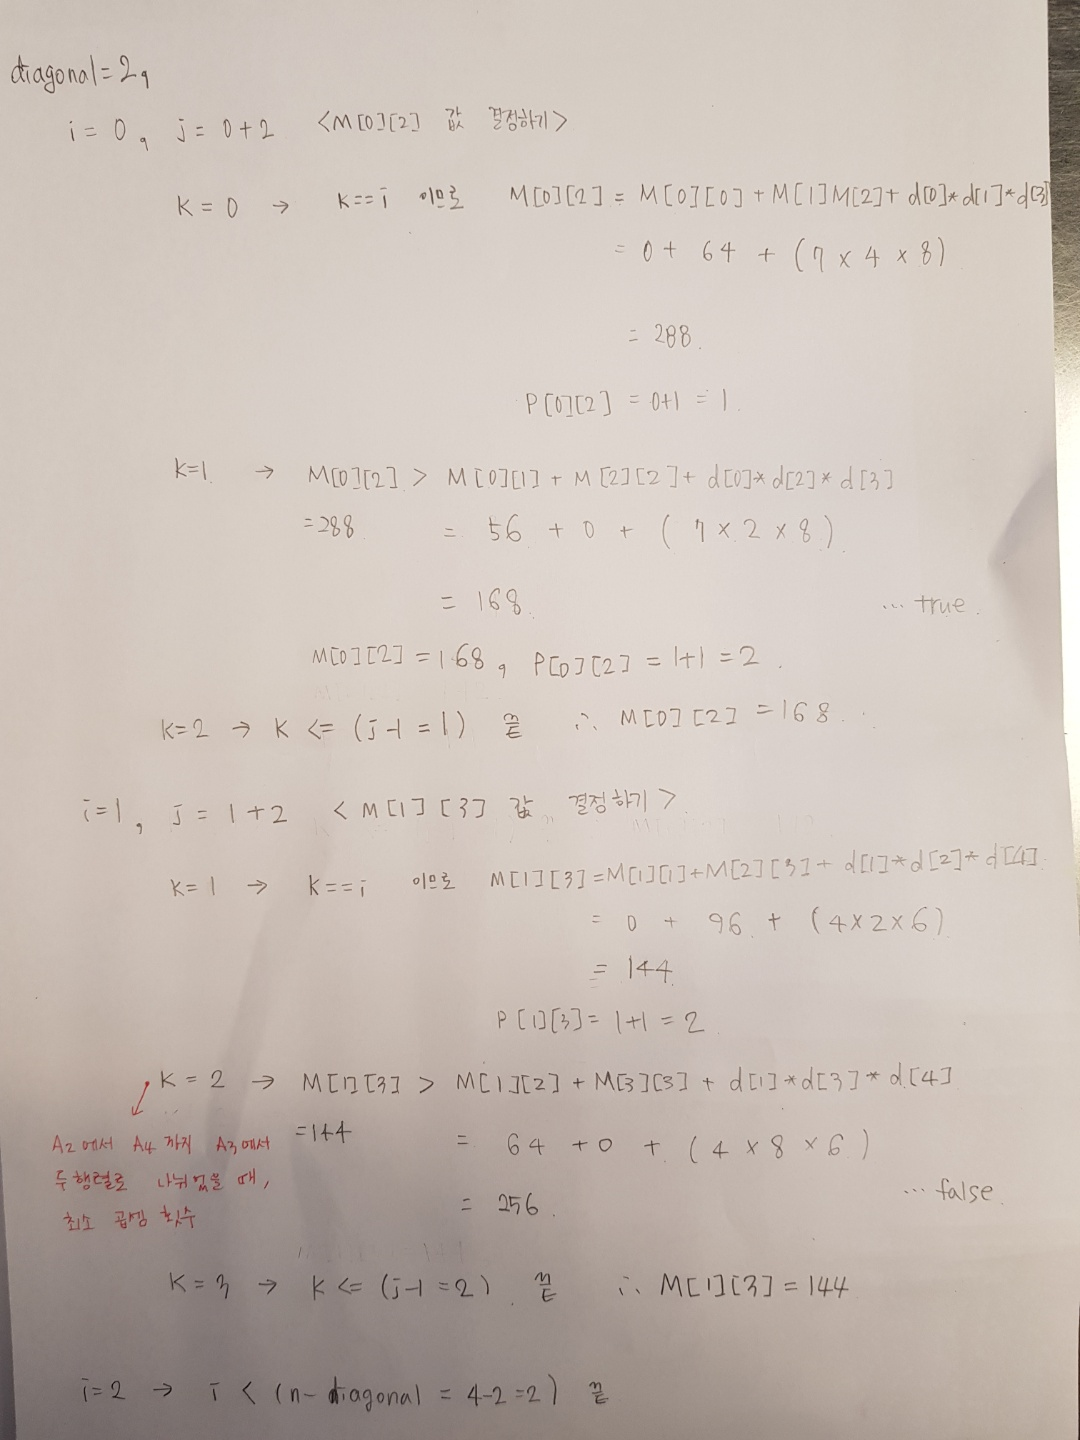 diagonal = 2,
i = 0, j = 0+2 <M[0][2] 값 결정하기>
K = 0 → K==i 이므로 M[0][2] = M[0][0] + M[1]M[2] + d[0]*d[1]*d[3]
= 0 + 64 + (7 × 4 × 8)
= 288.
P[0][2] = 0+1 = 1.
K=1. → M[0][2] > M[0][1] + M[2][2] + d[0]*d[2]*d[3]
=288 = 56 + 0 + (7 × 2 × 8)
= 168. … true.
M[0][2] = 168, P[0][2] = 1+1 = 2.
K=2 → K <= (j-1 = 1) 끝 ∴ M[0][2] = 168.
i=1, j = 1+2 <M[1][3] 값 결정하기>
K=1 → K==i 이므로 M[1][3]=M[1][1]+M[2][3]+ d[1]*d[2]*d[4]
= 0 + 96 + (4×2×6)
= 144
P[1][3] = 1+1 = 2
K = 2 → M[1][3] > M[1][2] + M[3][3] + d[1]*d[3]*d[4]
=144 = 64 + 0 + (4 × 8 × 6)
A2에서 A4 까지 A3에서
두 행렬로 나뉘었을 때,
최소 곱셈 횟수
= 256. … false.
K = 3 → K <= (j-1 = 2) 끝 ∴ M[1][3] = 144
i=2 → i < (n-diagonal = 4-2 = 2) 끝